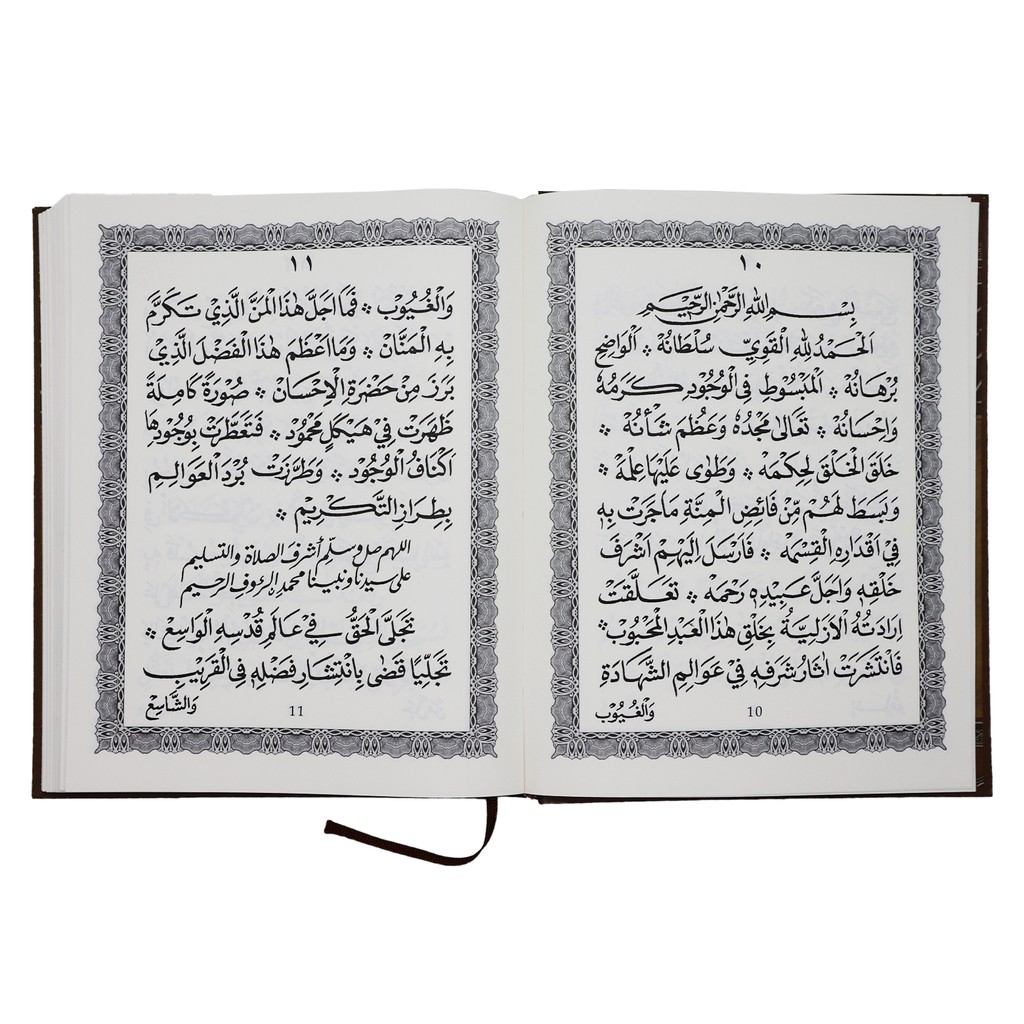 ١٠
بِسْمِ اللهِ الرَّحْمٰنِ الرَّحِيْمِ
اَلْحَمْدُ لِلّٰهِ الْقَوِيِّ سُلْطَانُهْ ۞ اَلْوَاضِحِ
بُرْهَانُهْ ۞ اَلْمَبْسُوْطِ فِي الْوُجُوْدِ كَرَمُهُ
وَاِحْسَانُهْ ۞ تَعَالىٰ مَجْدُهُ وَعَظُمَ شَانُهْ ۞
خَلَقَ الْخَلْقَ لِحِكْمَهْ ۞ وَطَوٰى عَلَيْهَا عِلْمَهْ ۞
وَبَسَطَ لَهُمْ مِّنْ فَائِضِ الْمِنَّةِ مَاجَرَتْ بِهِ
فِيْ اَقْدَارِهِ الْقِسْمَهْ ۞ فَارْسَلَ اِلَيْهِمْ اَشْرَفَ
خَلْقِهِ وَاَجَلَّ عَبِيْدِهِ رَحْمَهْ ۞ تَعَلَّقَتْ
اِرَادَتُهُ الْاَزَلِيَّةُ بِخَلْقِ هٰذَا الْعَبْدِ الْمَحْبُوْبْ ۞
فَانْتَشَرَتْ اٰثَارُ شَرَفِهِ فِيْ عَوَالِمِ الشَّهَادَةِ
وَالْغُيُوْبْ
10
١١
وَالْغُيُوْبْ ۞ فَمَا اَجَلَّ هٰذَا الْمَنَّ الَّذِيْ تَكَرَّمَ
بِهِ الْمَنَّانْ ۞ وَمَا اَعْظَمَ هٰذَا الْفَضْلَ الَّذِيْ
بَرَزَ مِنْ حَضْرَةِ الْاِحْسَانْ ۞ صُوْرَةً كَامِلَةً
ظَهَرَتْ فِيْ هَيْكَلٍ مَحْمُوْدْ ۞ فَتَعَطَّرَتْ بِوُجُوْدِهَا
اَكْنَافُ الْوُجُوْدْ ۞ وَطَرَّزَتْ بُرْدَ الْعَوَالِمِ
بِطِرَازِ التَّكْرِيْمْ ۞
اللهم صل وسلم أشرف الصلاة والتسليم
على سيدنا ونبينا محمد الرؤوف الرحيم
تَجَلَّى الْحَقُّ فِيْ عَالَمِ قُدْسِهِ الْوَاسِعْ ۞
تَجَلِّيًا قَضٰى بِانْتِشَارِ فَضْلِهِ فِي الْقَرِيْبِ
وَالشَّاسِعْ
11